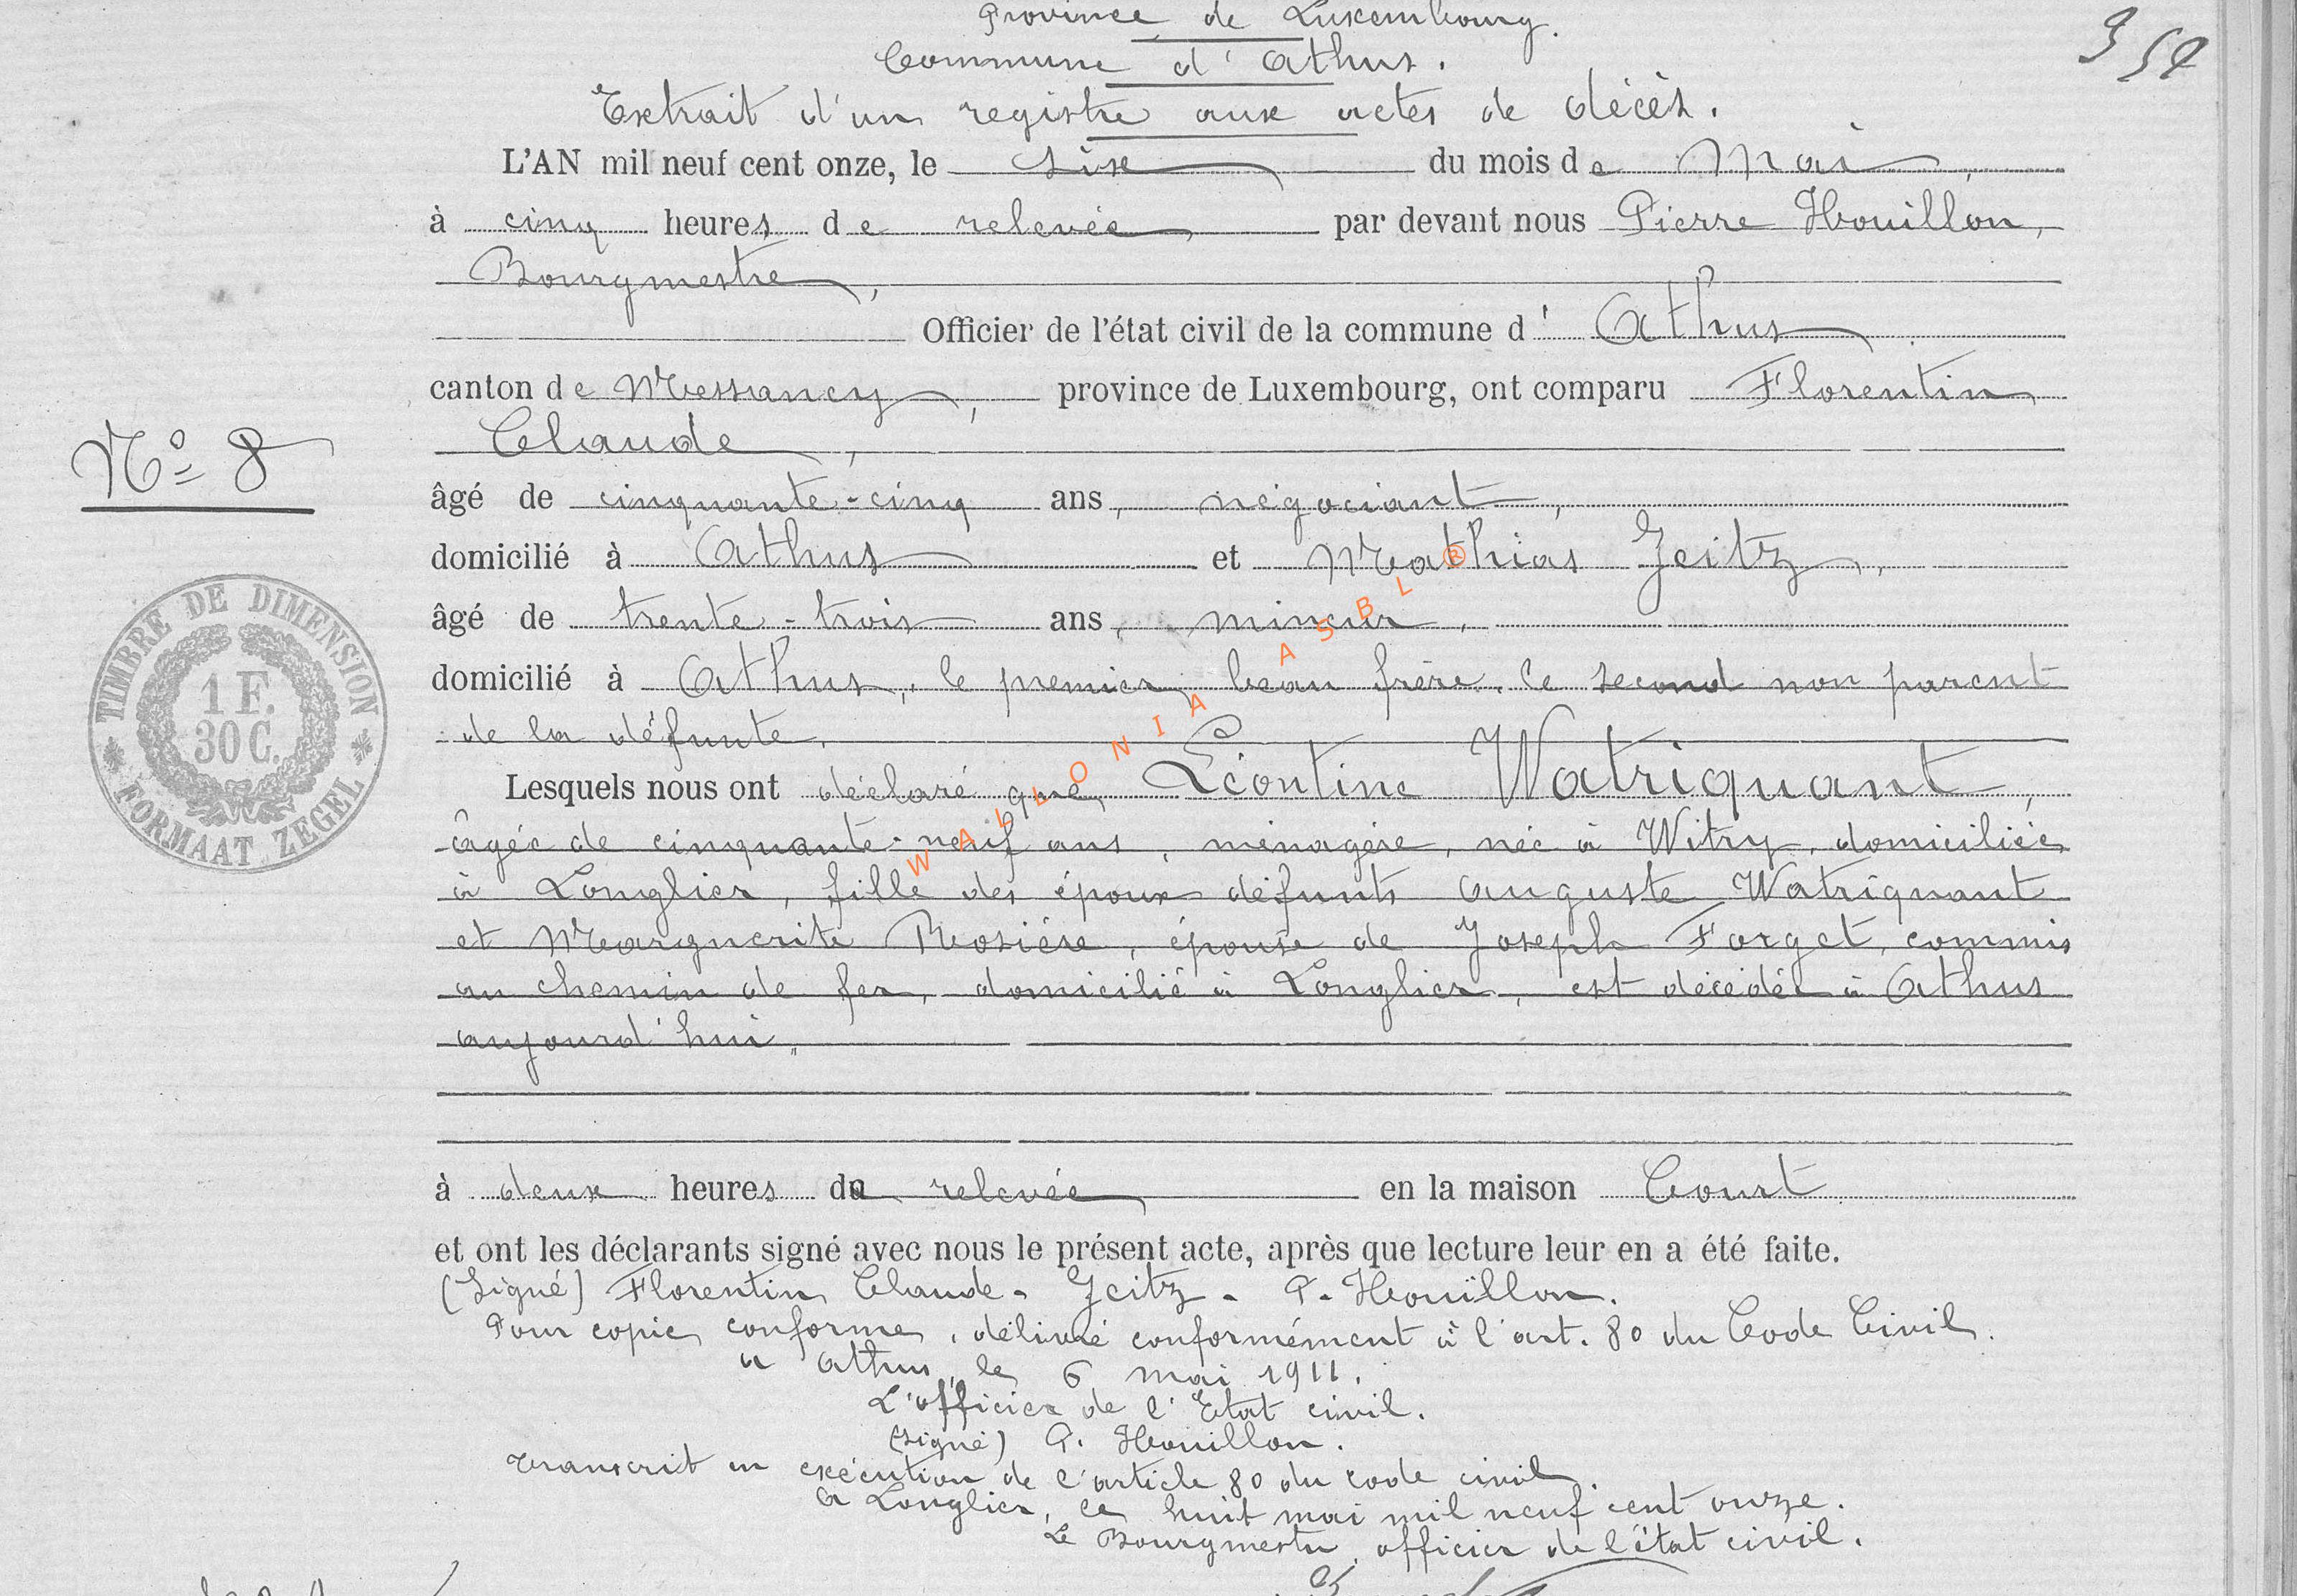 Province de Luxembourg.
Commune d'Athus.
354
Extrait d'un registre aux actes de décès.
L'AN mil neuf cent onze, le six du mois de Mai,
à cinq heures de relevée par devant nous Pierre Houillon,
Bourgmestre,
Officier de l'état civil de la commune d'Athus
canton de Messancy, province de Luxembourg, ont comparu Florentin
Claude,
N° 8
âgé de cinquante-cinq ans, négociant,
domicilié à Athus et Mathias Zeitz,
âgé de trente-trois ans, mineur,
domicilié à Athus, le premier beau frère, le second non parent
de la défunte,
TIMBRE DE DIMENSION
1 F.
30 C.
FORMAAT ZEGEL
Lesquels nous ont déclaré que Léontine Watriquant,
âgée de cinquante-neuf ans, ménagère, née à Witry, domiciliée
à Longlier, fille des époux défunts Auguste Watriquant
et Marguerite Rosière, épouse de Joseph Forget, commis
au chemin de fer, domicilié à Longlier, est décédée à Athus
aujourd'hui,,
à deux heures de relevée en la maison Court
et ont les déclarants signé avec nous le présent acte, après que lecture leur en a été faite.
(Signé) Florentin Claude - Zeitz - P. Houillon.
Pour copie conforme, délivré conformément à l'art. 80 du Code Civil.
à Athus, le 6 mai 1911.
L'officier de l'Etat civil.
(signé) P. Houillon.
Transcrit en exécution de l'article 80 du code civil.
A Longlier, ce huit mai mil neuf cent onze.
Le Bourgmestre, officier de l'état civil.
WALLONIA ASBL ®